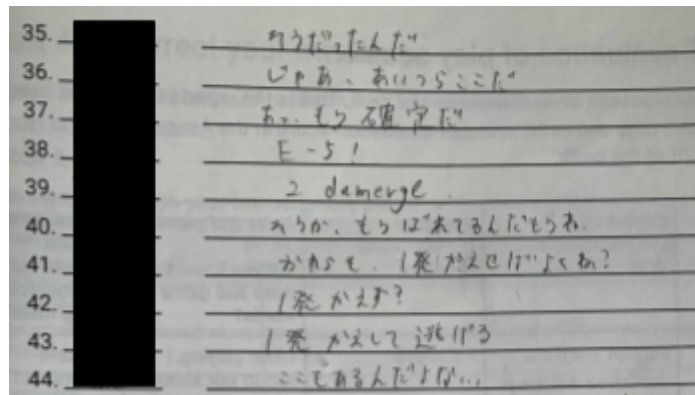 35. そうだったんだ
36. じゃあ、あいつらここだ
37. あっ、もう確定だ
38. E-5!
39. 2 damerge.
40. そうか、もうばれてるんだもうね.
41. かれらも、1発かえせばよくね?
42. 1発かえす?
43. 1発かえして逃げる
44. ここもあるんだよな...